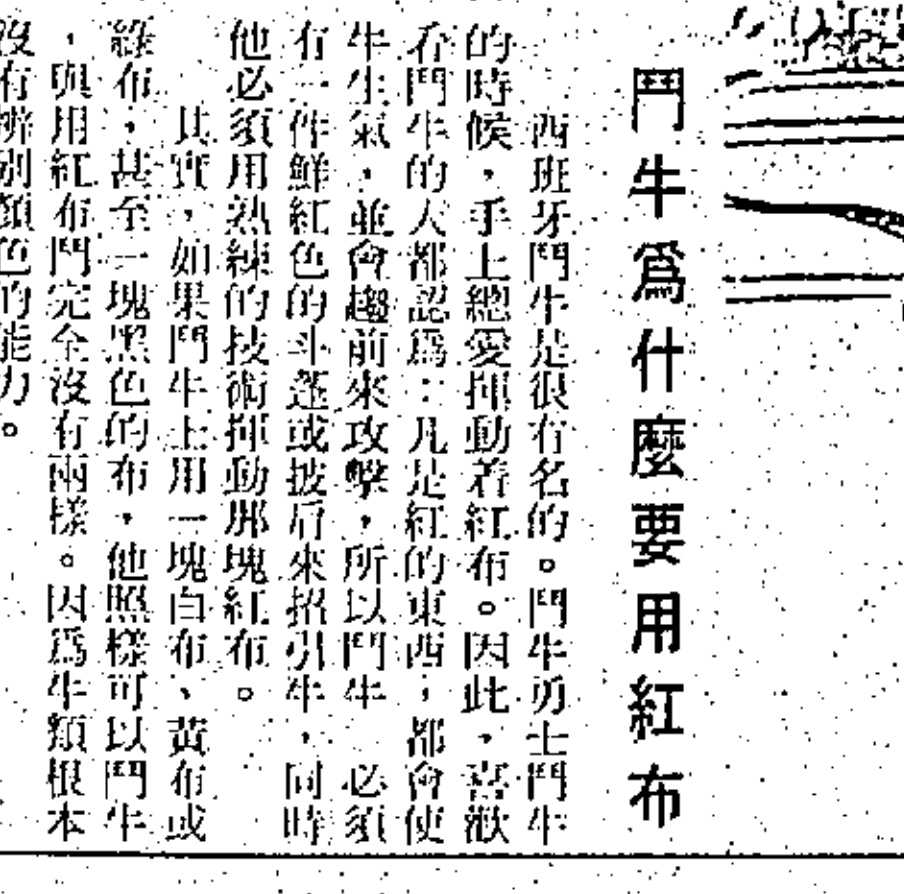 鬥牛爲什麼要用紅布
西班牙鬥牛是很有名的。鬥牛勇士鬥牛
的時候，手上總愛揮動着紅布。因此，喜歡
看鬥牛的人都認爲：凡是紅的東西，都會使
牛生氣，並會趨前來攻擊，所以鬥牛 必須
有一件鮮紅色的斗蓬或披肩來招引牛，同時
他必須用熟練的技術揮動那塊紅布。
其實，如果鬥牛士用一塊白布、黃布或
綠布，甚至一塊黑色的布，他照樣可以鬥牛
，與用紅布鬥完全沒有兩樣。因爲牛類根本
沒有辨別顏色的能力。